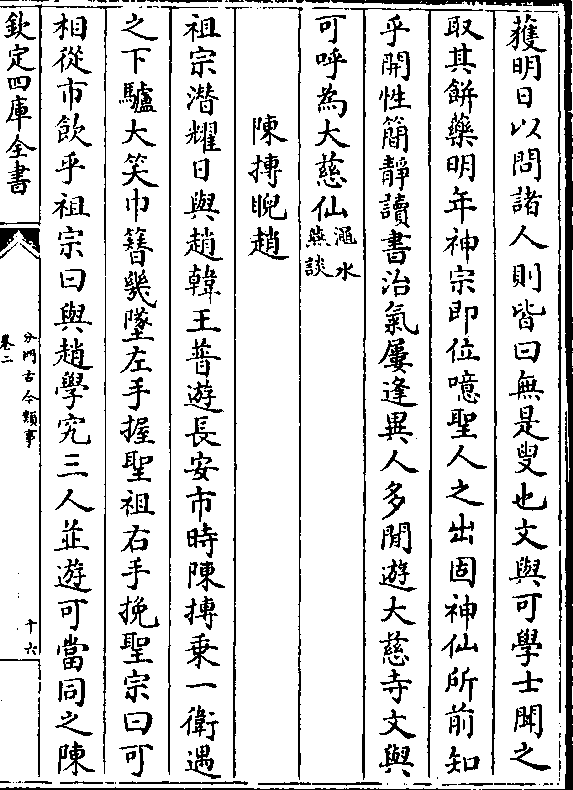 獲明日以問諸人則皆曰無是叟也文與可學士聞之
取其餅藥明年神宗即位噫聖人之出固神仙所前知
乎開性簡靜讀書治氣屢逢異人多閒遊大慈寺文與
可呼為大慈仙澠水燕談
陳摶睨趙
祖宗潛耀日與趙韓王普遊長安市時陳摶乗一衛遇
之下驢大笑巾簪幾墜左手握聖祖右手挽聖宗曰可
相從市飲乎祖宗曰與趙學究三人並遊可當同之陳
欽定四庫全書
分門古今類事
卷二
十六